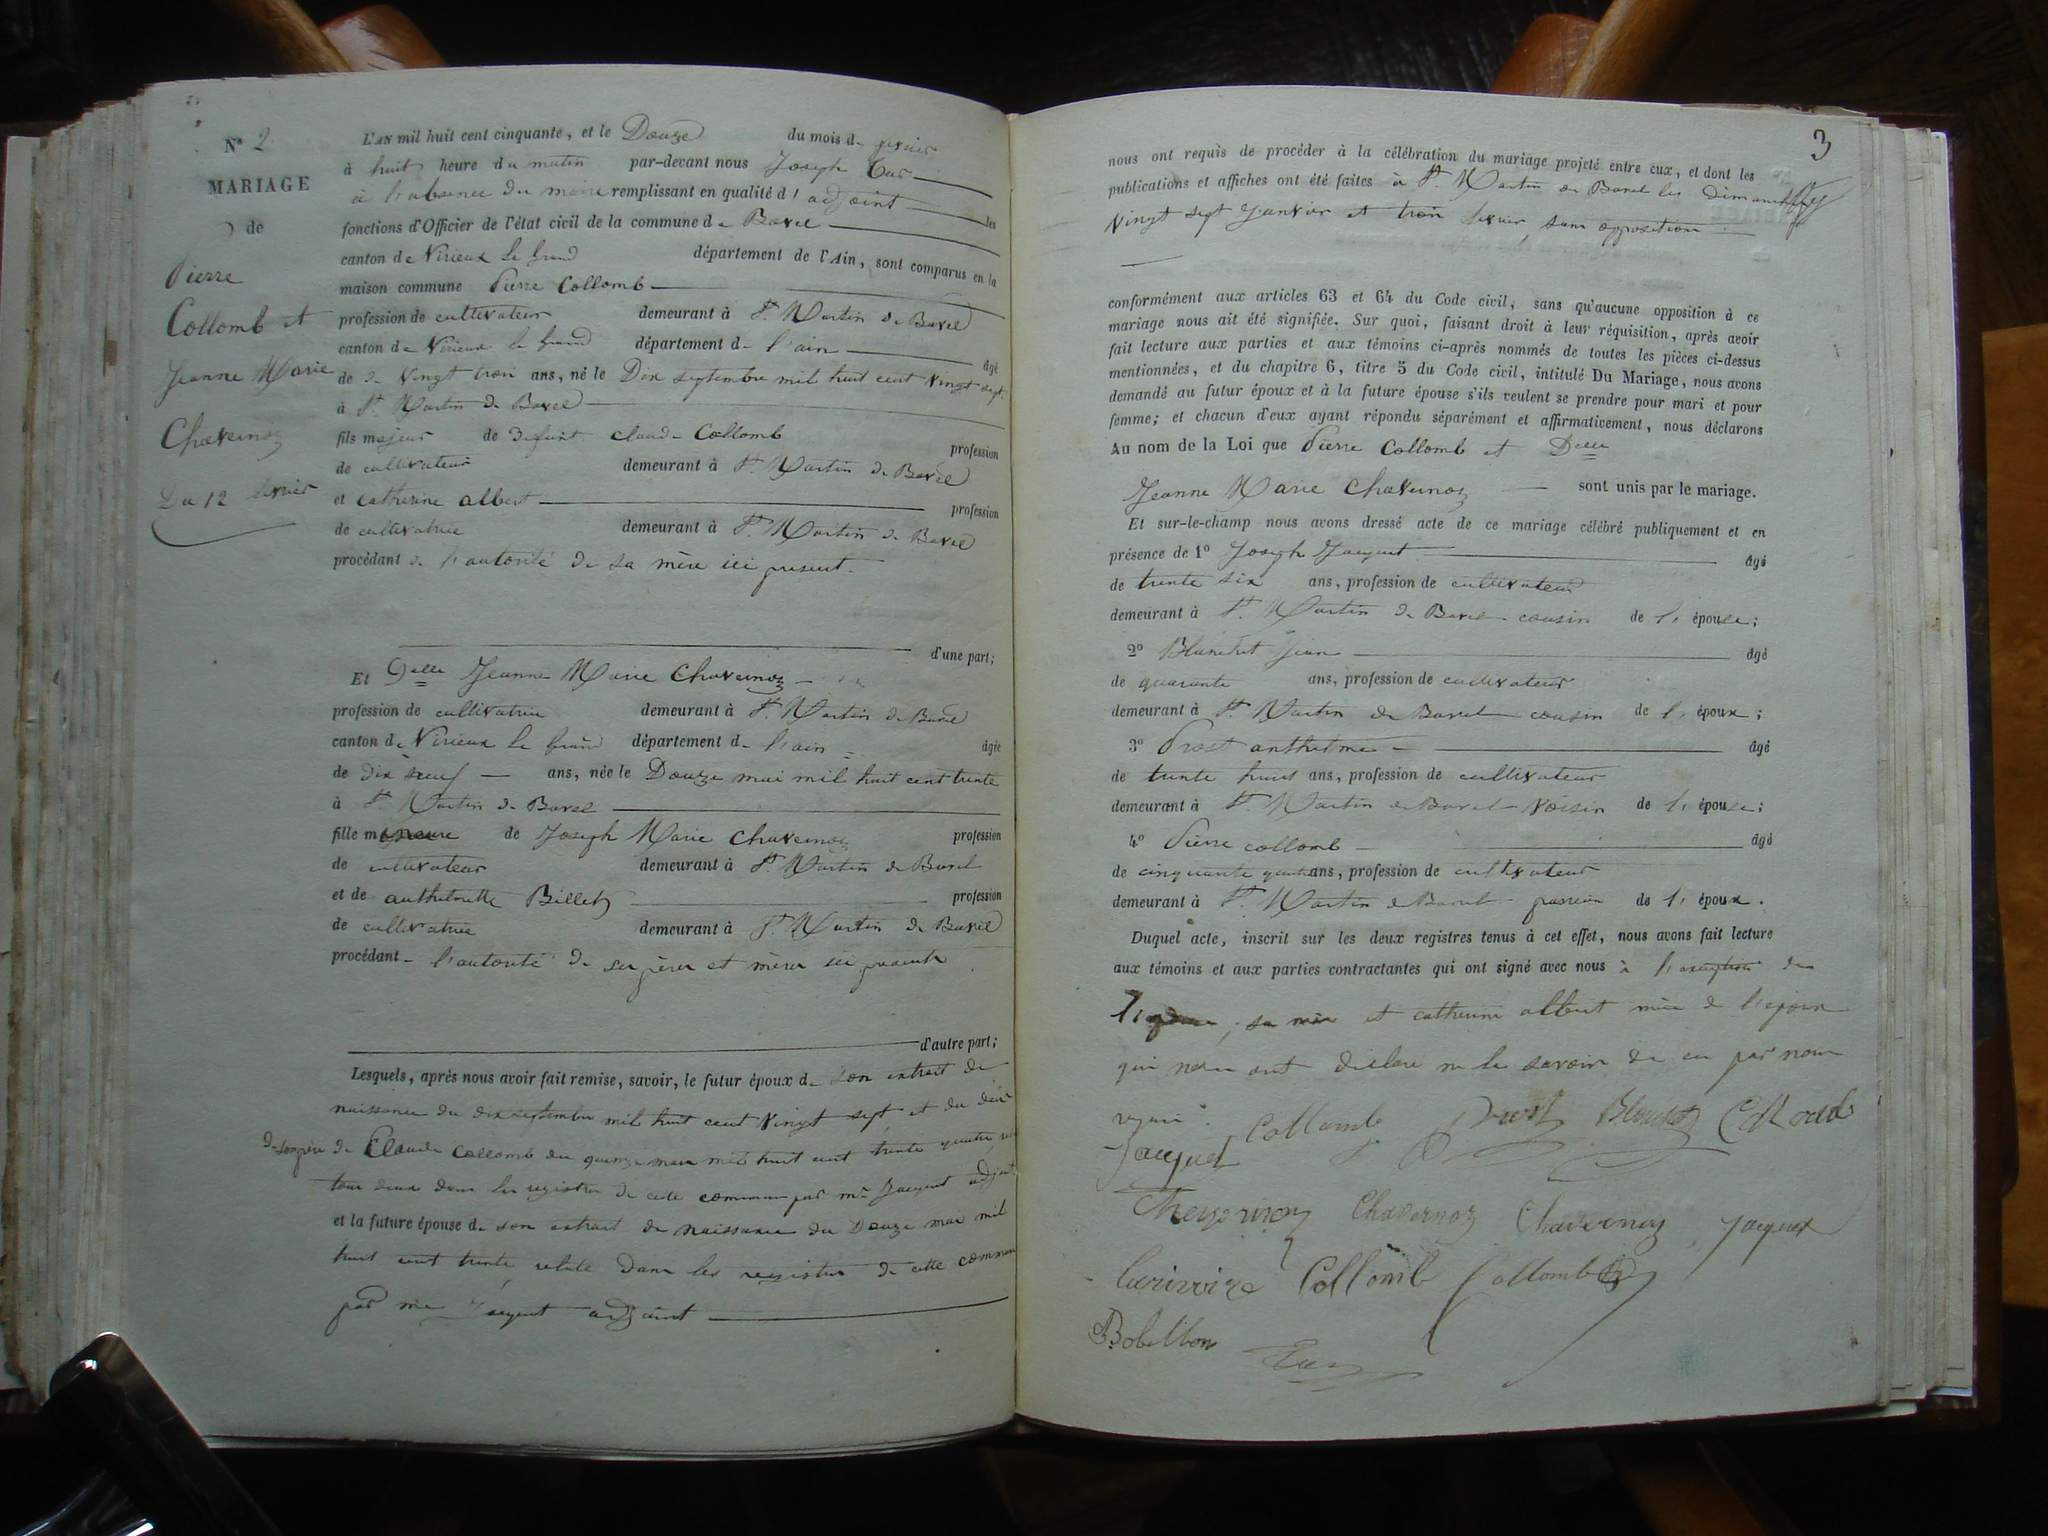 Nº 2
MARIAGE
de
Pierre
Collomb et
Jeanne Marie
Chavernoz
Du 12 fevrier
L'AN mil huit cent cinquante, et le Douze du mois de fevrier
à huit heure du matin par-devant nous Joseph
à l'absence du maire remplissant en qualité d'adjoint les
fonctions d'Officier de l'état civil de la commune de Bavel
canton de Virieux le Grand département de l'Ain, sont comparus en la
maison commune Pierre Collomb
profession de cultivateur demeurant à St. Martin de Bavel
canton de Virieux le Grand département de l'ain âgé
de de Vingt trois ans, né le Dix septembre mil huit cent Vingt sept
à St. Martin de Bavel
fils majeur de defunt claude Collomb profession
de cultivateur demeurant à St. Martin de Bavel
et catherine albert profession
de cultivatrice demeurant à St. Martin de Bavel
procédant de l'autorité de sa mère ici present
d'une part;
Et Delle Jeanne Marie Chavernoz
profession de cultivatrice demeurant à St. Martin de Bavel
canton de Virieux le Grand département de l'ain âgée
de dix neuf ans, née le Douze mai mil huit cent trente
à St. Martin de Bavel
fille mineure de Joseph Marie Chavernoz profession
de cultivateur demeurant à St. Martin de Bavel
et de anthelmette Billet profession
de cultivatrice demeurant à St. Martin de Bavel
procédant l'autorité de ses pères et mères ici presents
d'autre part;
Lesquels, après nous avoir fait remise, savoir, le futur époux de son extrait de
naissance du dix septembre mil huit cent Vingt sept et du décè
de son père de Claude Collomb du quinze mars mil huit cent trente quatre
tous deux dans les registres de cette commune par mr. Jacquet adjoint
et la future épouse de son extrait de naissance du Douze mai mil
huit cent trente relaté dans les registres de cette commune
par mr Jacquet adjoint
3
nous ont requis de procéder à la célébration du mariage projeté entre eux, et dont les
publications et affiches ont été faites à St. Martin de Bavel les Dimanches
Vingt sept Janvier et trois fevrier, sans opposition
conformément aux articles 63 et 64 du Code civil, sans qu'aucune opposition à ce
mariage nous ait été signifiée. Sur quoi, faisant droit à leur réquisition, après avoir
fait lecture aux parties et aux témoins ci-après nommés de toutes les pièces ci-dessus
mentionnées, et du chapitre 6, titre 5 du Code civil, intitulé Du Mariage, nous avons
demandé au futur époux et à la future épouse s'ils veulent se prendre pour mari et pour
femme; et chacun d'eux ayant répondu séparément et affirmativement, nous déclarons
Au nom de la Loi que Pierre Collomb et Delle
Jeanne Marie Chavernoz sont unis par le mariage.
Et sur-le-champ nous avons dressé acte de ce mariage célébré publiquement et en
présence de 1º Joseph Jacquet âgé
de trente six ans, profession de cultivateur
demeurant à St. Martin de Bavel cousin de l'épouse;
2º Blanchet Jean âgé
de quarante ans, profession de cultivateur
demeurant à St. Martin de Bavel cousin de l'époux;
3º Prost anthelme âgé
de trente huit ans, profession de cultivateur
demeurant à St. Martin de Bavel Voisin de l'épouse;
4º Pierre collomb âgé
de cinquante quatre ans, profession de cultivateur
demeurant à St. Martin de Bavel de l'époux.
Duquel acte, inscrit sur les deux registres tenus à cet effet, nous avons fait lecture
aux témoins et aux parties contractantes qui ont signé avec nous à l'exception de
sa mère et catherine albert mère de l'epoux
qui nous ont déclaré ne le savoir de ce par nous
requis.
Collomb Prost Blanchet
Jacquet
Chavernoz Chavernoz Jacquet
Collomb Collomb
Bobillon